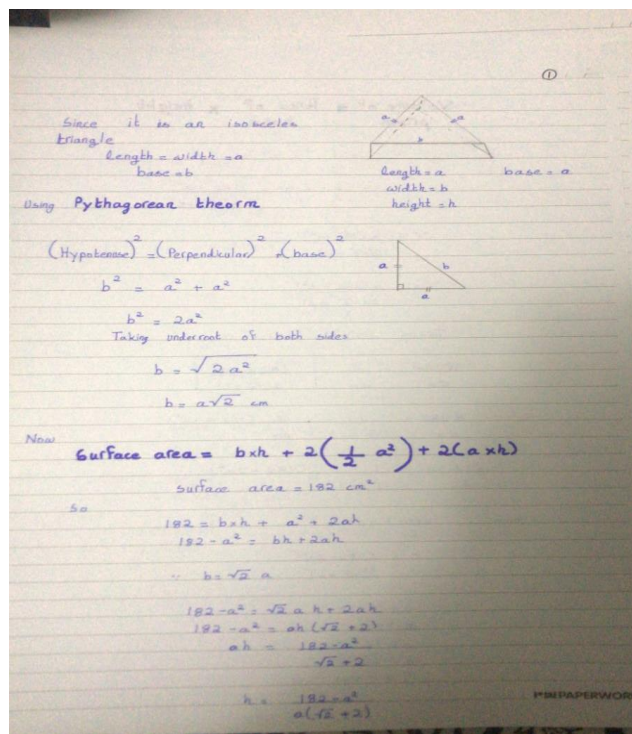 ①
Since it is an isosceles
triangle
length = width = a
base = b
a
a
b
length = a base = a
width = b
height = h
Using Pythagorean theorm
(Hypotenose)² = (Perpendicular)² + (base)²
b² = a² + a²
b² = 2a²
a
b
a
Taking underroot of both sides
b = √2a²
b = a√2 cm
Now
Surface area = b×h + 2(1/2 a²) + 2(a×h)
surface area = 182 cm²
So
182 = b×h + a² + 2ah
182 - a² = bh + 2ah
∵ b = √2 a
182 - a² = √2 a h + 2ah
182 - a² = ah (√2 + 2)
ah = 182 - a² / √2 + 2
h = 182 - a² / a(√2 + 2)
PAPERWOR